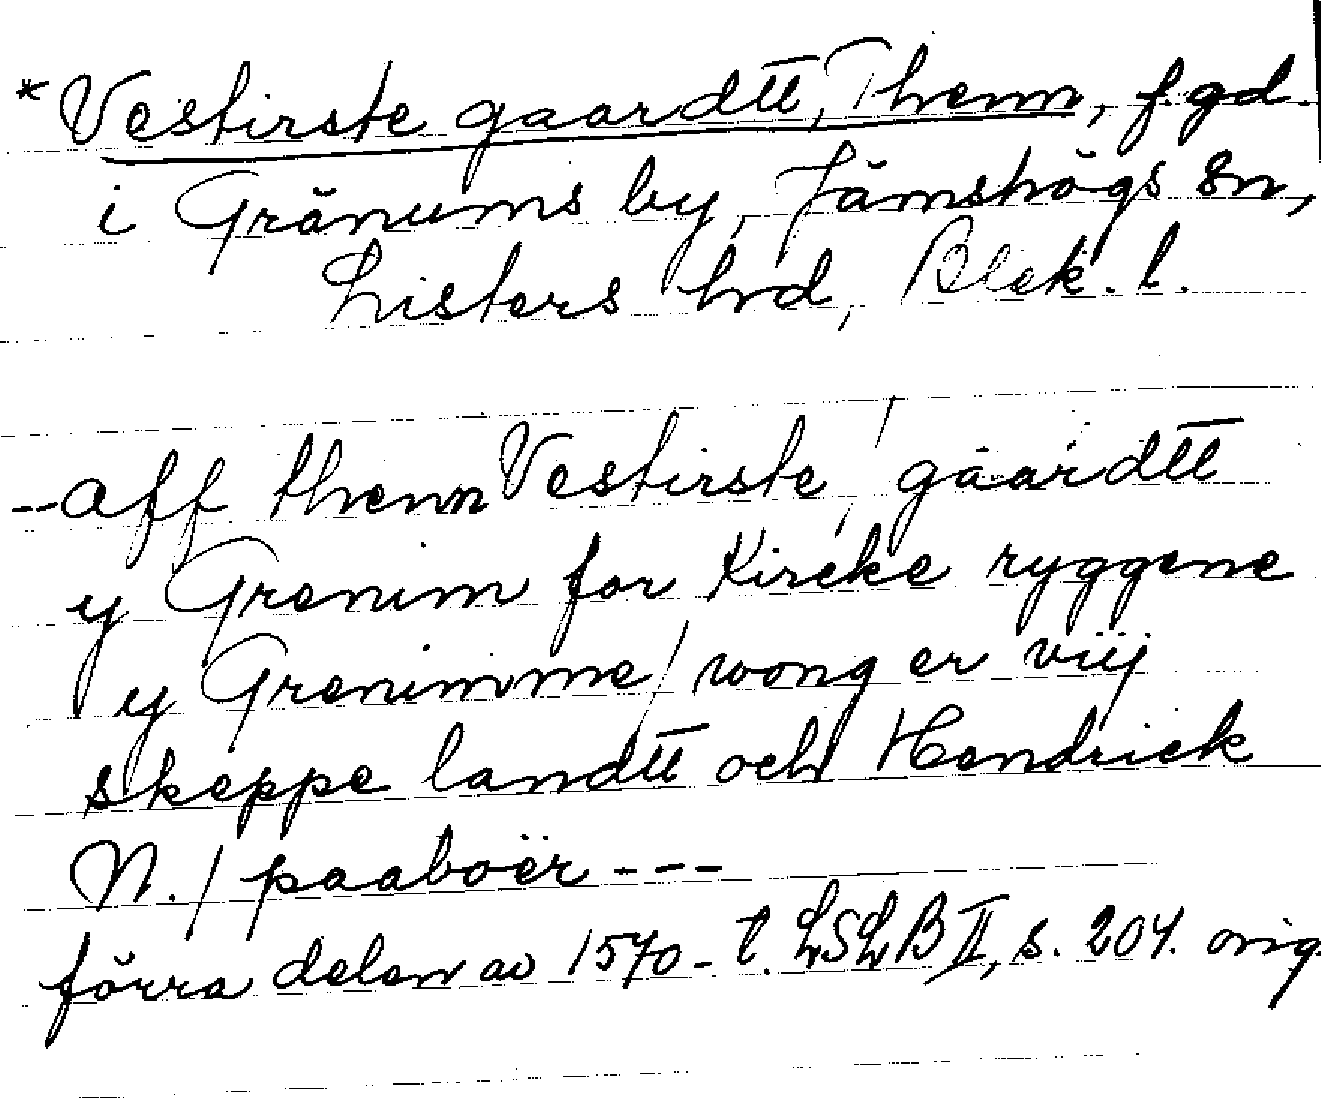 *Vestirste gaardtt, Thenn, f.gd.
i Gränums by, Jämshögs sn,
Listers hrd, Blek. l.
--aff thenn Vestirste / gaardtt
y Grenim for Kircke ryggene
y Grenimme / wong er viij
skeppe landtt och Hendrick
N. / paaboër ---
förra delen av 1570-t. LSLB II, s. 204. orig.